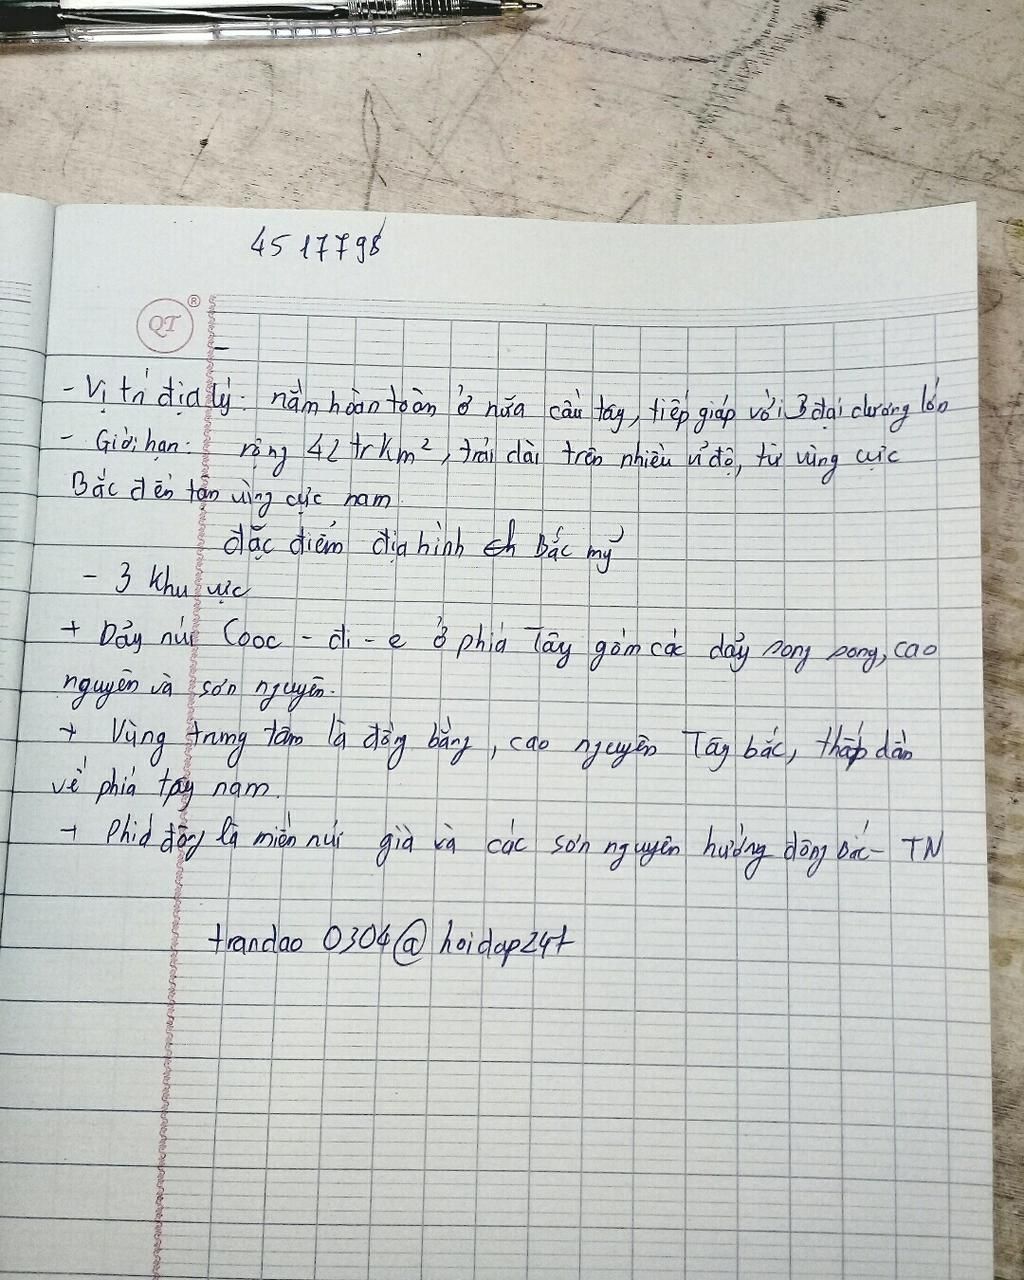 4517798
QT
®
- Vị trí địa lý: nằm hoàn toàn ở nửa cầu tây, tiếp giáp với 3 đại dương lớn
- Giới hạn: rộng 42 tr km², trải dài trên nhiều vĩ độ, từ vùng cực
Bắc đến tận vùng cực nam.
đặc điểm địa hình Bắc mỹ
- 3 khu vực
+ Dãy núi Cooc - đi - e ở phía Tây gồm các dãy song song, cao
nguyên và sơn nguyên.
+ Vùng trung tâm là đồng bằng, cao nguyên Tây bắc, thấp dần
về phía tây nam.
+ Phía đông là miền núi già và các sơn nguyên hướng đông bắc - TN
trandao 0304@hoidap247